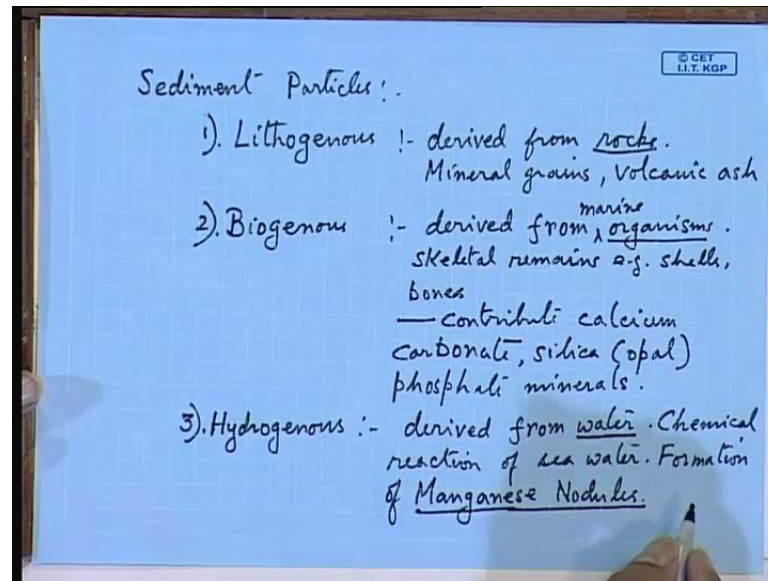 © CET
I.I.T. KGP
Sediment Particles :-
1). Lithogenous :- derived from rocks.
Mineral grains, Volcanic ash
2). Biogenous :- derived from marine organisms.
skeletal remains e.g. shells,
bones
— contribute calcium
carbonate, silica (opal)
phosphate minerals.
3). Hydrogenous :- derived from water. Chemical
reaction of sea water. Formation
of Manganese Nodules.